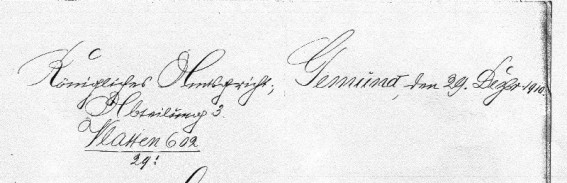 Königliches Amtsgericht, Gemünd, den 29. Dezbr 1910.
Abteilung 3.
Wlatten 602
29!